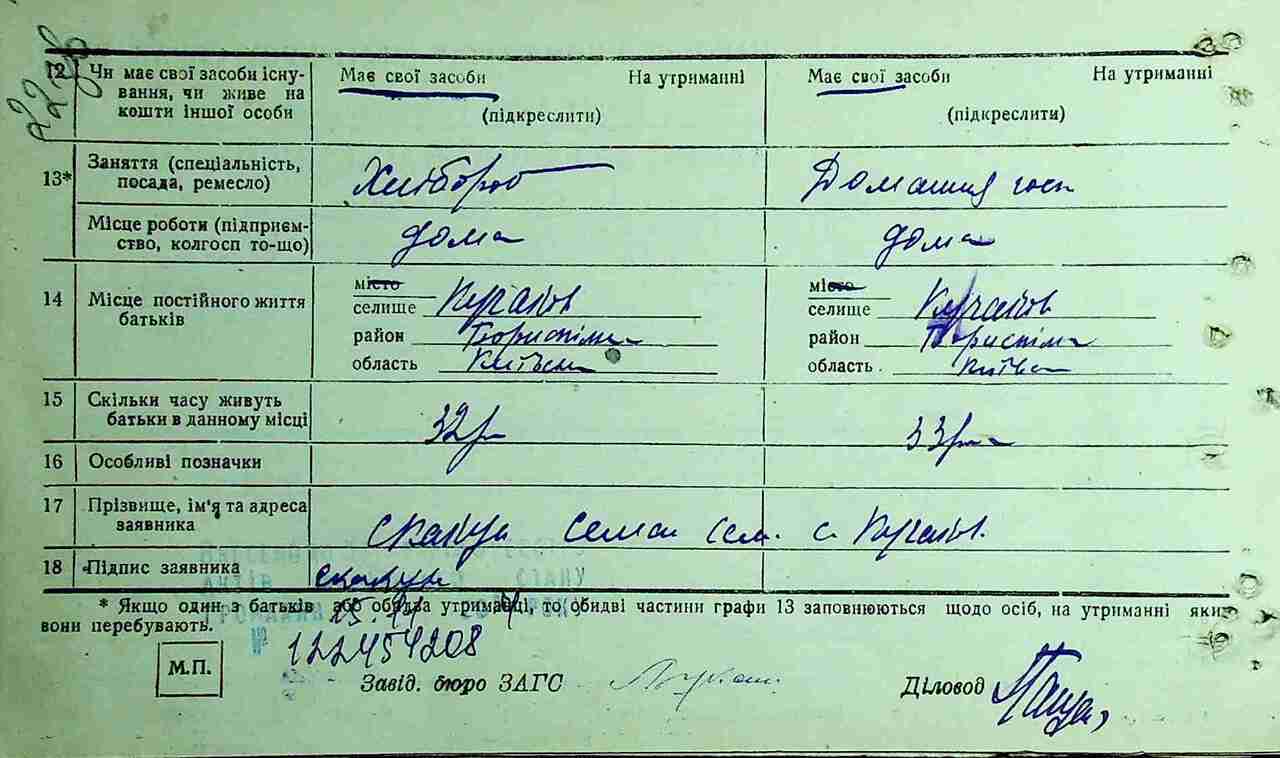 12 Чи має свої засоби існу- Має свої засоби На утриманні Має свої засоби На утриманні
вання, чи живе на
кошти іншої особи (підкреслити) (підкреслити)
13* Заняття (спеціальність, Хлібороб Домашня госп
посада, ремесло)
Місце роботи (підприєм- дома дома
ство, колгосп то-що)
14 Місце постійного життя місто місто
батьків селище Кучаків селище Кучаків
район Бориспільс район Бориспільс
область Київськ область Київськ
15 Скільки часу живуть 32р 33р
батьки в данному місці
16 Особливі позначки
17 Прізвище, ім'я та адреса Скакун Семен Сем. с. Кучаків.
заявника
18 Підпис заявника Скакун
АКТІВ СТАНУ
* Якщо один з батьків або обидва утриманці, то обидві частини графи 13 заповнюються щодо осіб, на утриманні яких
вони перебувають.
№ 122454208
М.П. Завід. бюро ЗАГС Діловод